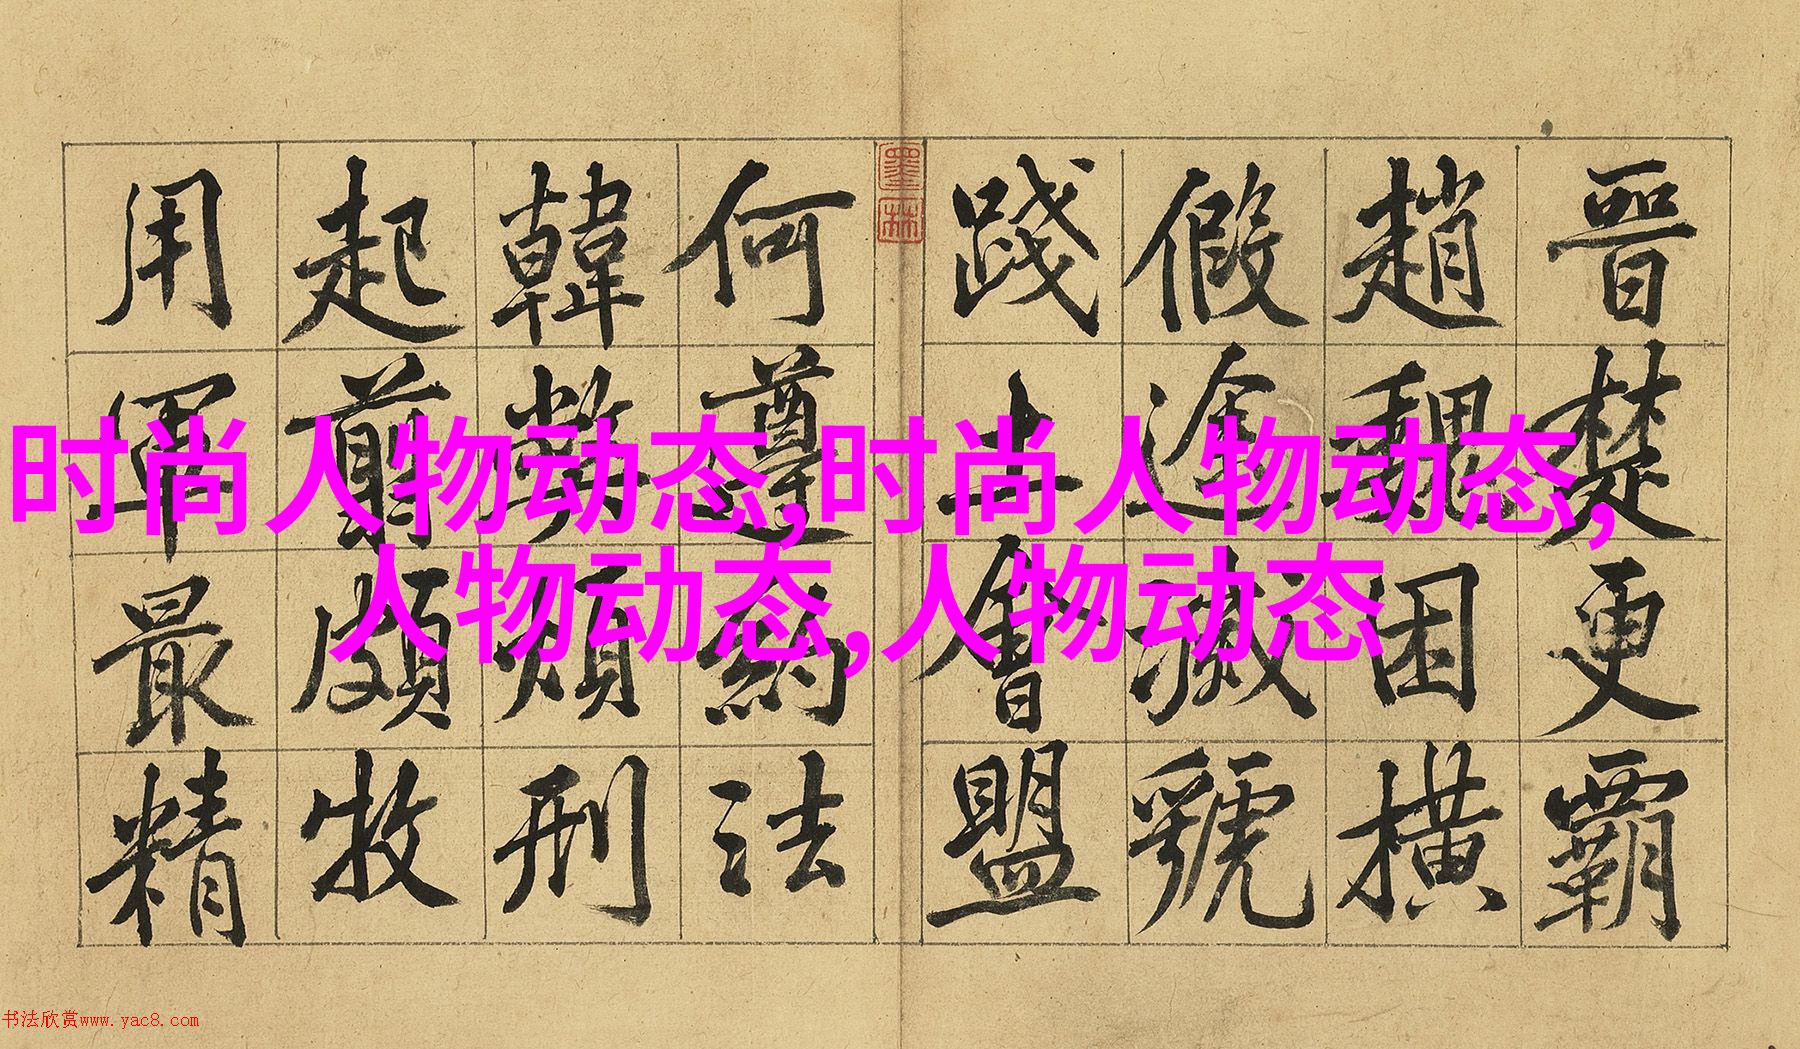 晉楚更霸
趙魏困橫
假途滅虢
踐土會盟
墨林
何遵約法
韓弊煩刑
起翦頗牧
用軍最精
时尚人物动态,时尚人物动态,
人物动态,人物动态
书法欣赏www.yac8.com